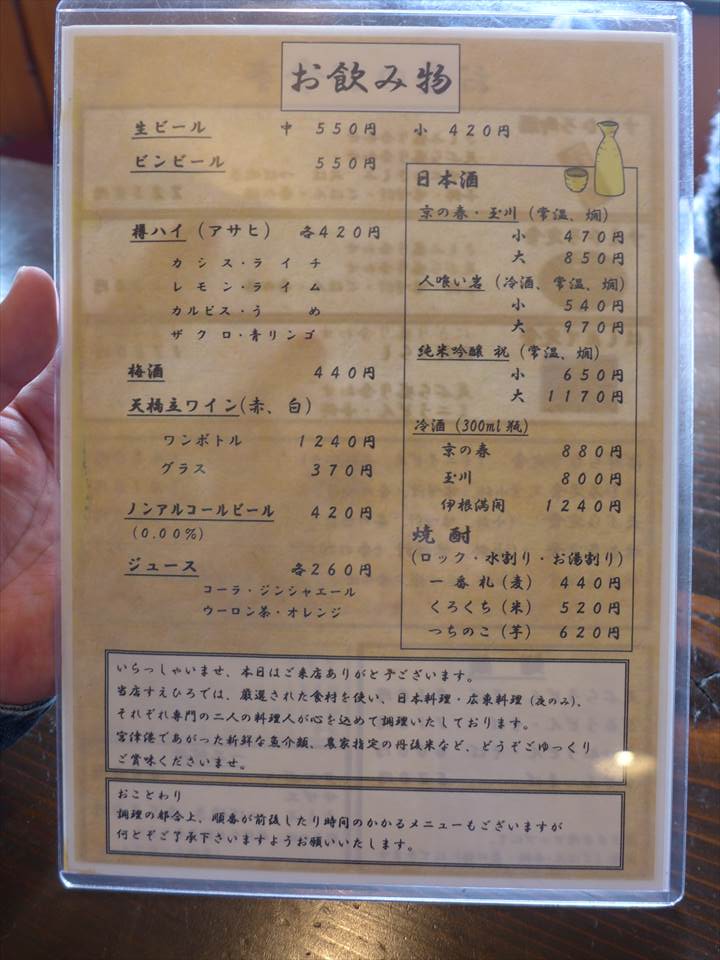 お飲み物
生ビール 中 550円 小 420円
ビンビール 550円
樽ハイ (アサヒ) 各420円
カシス・ライチ
レモン・ライム
カルピス・うめ
ザクロ・青リンゴ
梅酒 440円
天橋立ワイン(赤、白)
ワンボトル 1240円
グラス 370円
ノンアルコールビール 420円
(0.00%)
ジュース 各260円
コーラ・ジンシャエール
ウーロン茶・オレンジ
日本酒
京の春・玉川 (常温、燗)
小 470円
大 850円
人喰い岩 (冷酒、常温、燗)
小 540円
大 970円
純米吟醸 祝 (常温、燗)
小 650円
大 1170円
冷酒 (300ml瓶)
京の春 880円
玉川 800円
伊根満開 1240円
焼酎
(ロック・水割り・お湯割り)
一番札 (麦) 440円
くろくち (米) 520円
つちのこ (芋) 620円
いらっしゃいませ、本日はご来店ありがとうございます。
当店すえひろでは、厳選された食材を使い、日本料理・広東料理 (夜のみ)、
それぞれ専門の二人の料理人が心を込めて調理いたしております。
宮津港であがった新鮮な魚介類、農家指定の丹後米など、どうぞごゆっくり
ご賞味くださいませ。
おことわり
調理の都合上、順番が前後したり時間のかかるメニューもございますが
何とぞご了承下さいますようお願いいたします。